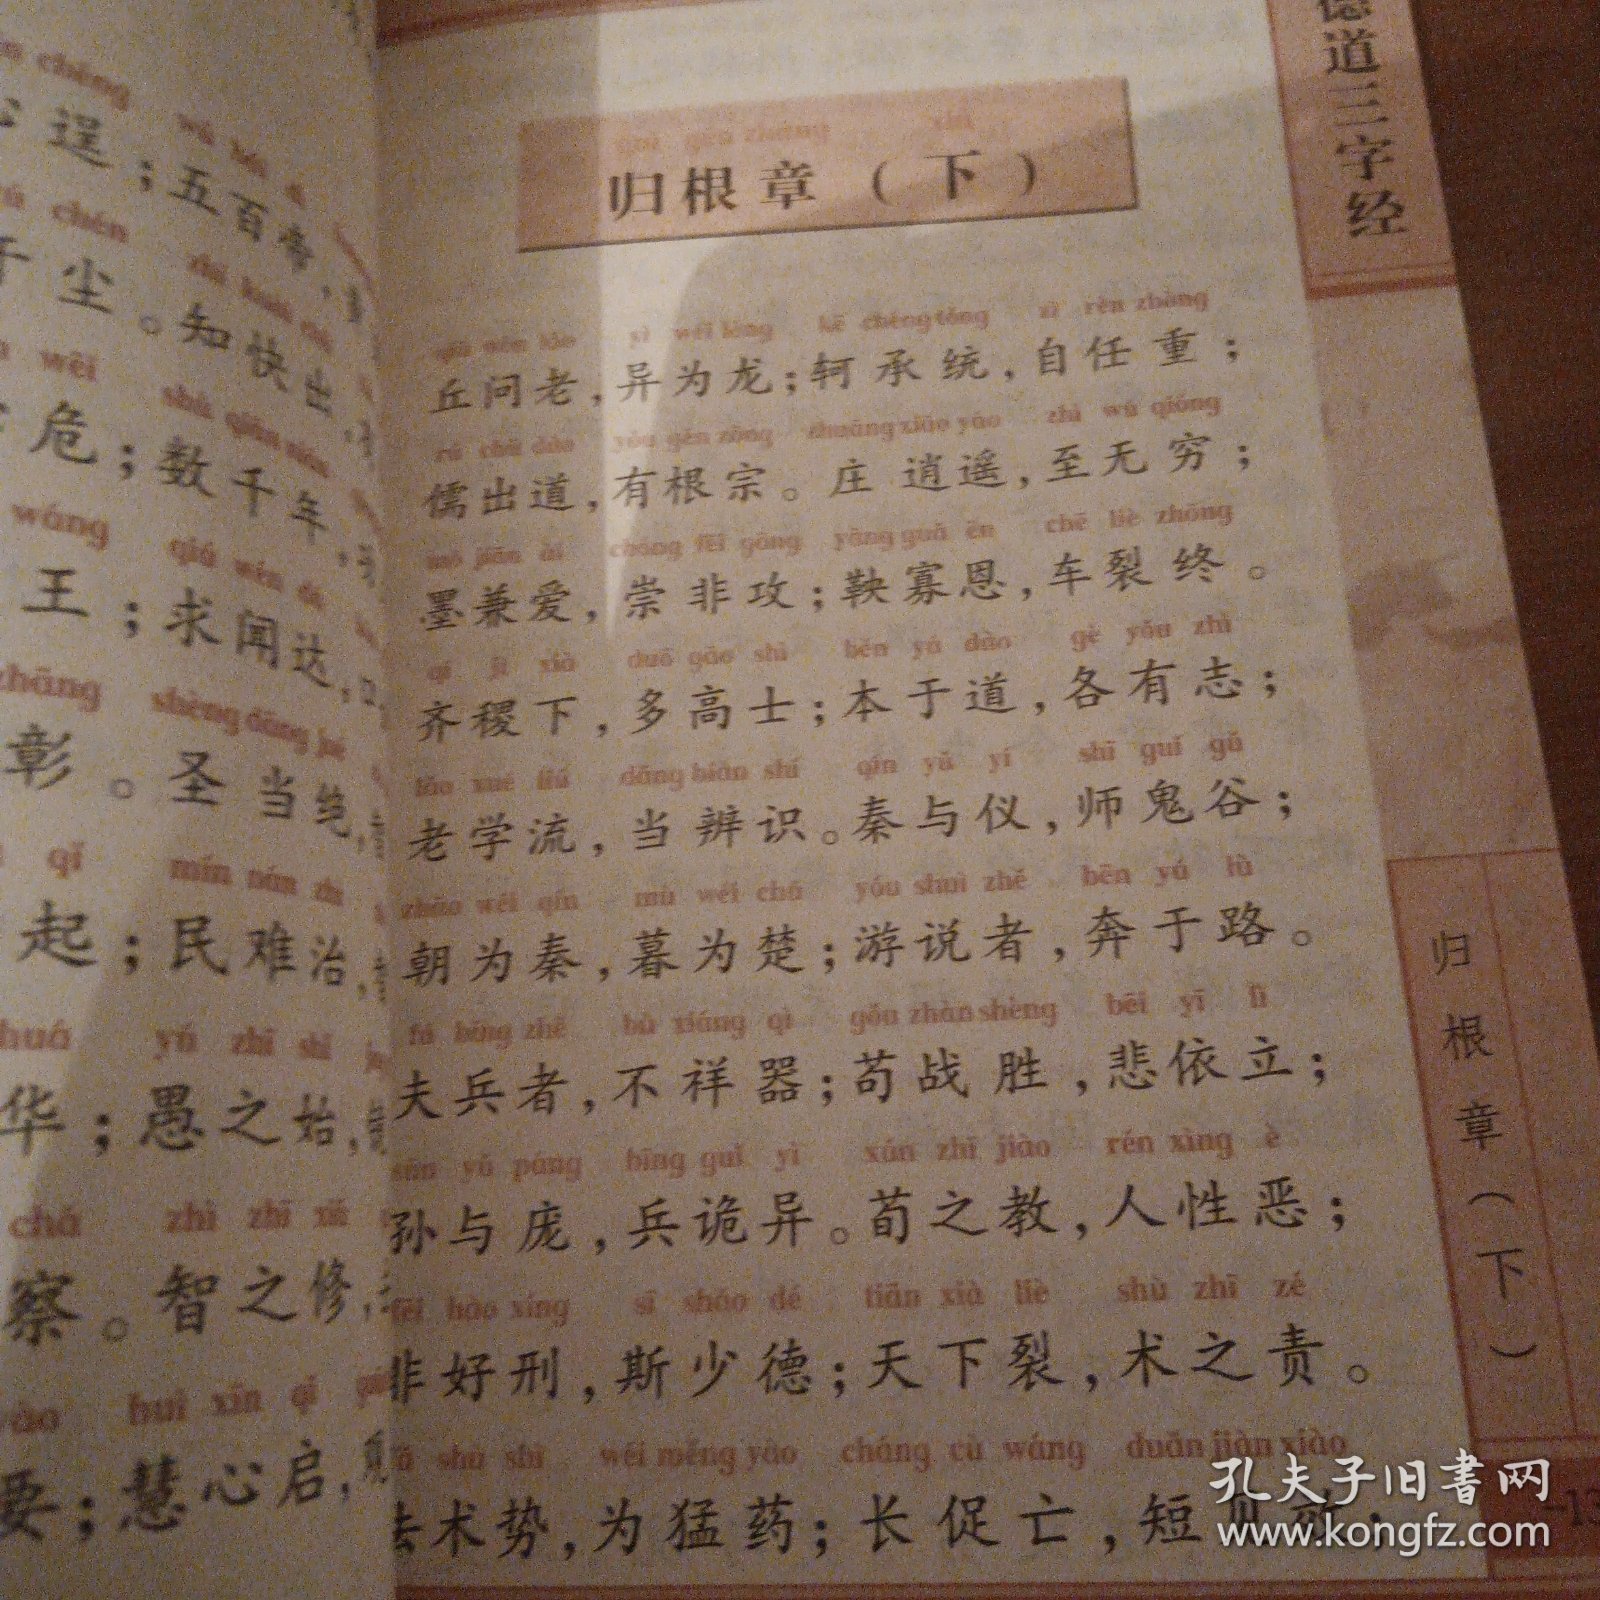 逞；五百帝，
尘。知快出，
危；数千年，
王；求闻达，
彰。圣当绝，
起；民难治，
华；愚之始，
察。智之修，
要；慧心启，
德道三字经
guī gēn zhāng xià
归根章（下）
qiū wèn lǎo yì wéi lóng kē chéng tǒng zì rèn zhòng
丘问老，异为龙；轲承统，自任重；
rú chū dào yǒu gēn zōng zhuāng xiāo yáo zhì wú qióng
儒出道，有根宗。庄逍遥，至无穷；
mò jiān ài chóng fēi gōng yāng guǎ ēn chē liè zhōng
墨兼爱，崇非攻；鞅寡恩，车裂终。
qí jì xià duō gāo shì běn yú dào gè yǒu zhì
齐稷下，多高士；本于道，各有志；
lǎo xué liú dāng biàn shí qín yǔ yí shī guǐ gǔ
老学流，当辨识。秦与仪，师鬼谷；
zhāo wéi qín mù wéi chǔ yóu shuì zhě bēn yú lù
朝为秦，暮为楚；游说者，奔于路。
fú bīng zhě bù xiáng qì gǒu zhàn shèng bēi yī lì
夫兵者，不祥器；苟战胜，悲依立；
sūn yǔ páng bīng guǐ yì xún zhī jiào rén xìng è
孙与庞，兵诡异。荀之教，人性恶；
fēi hào xíng sī shǎo dé tiān xià liè shù zhī zé
非好刑，斯少德；天下裂，术之责。
shù shì wéi měng yào cháng cù wáng duǎn jiàn xiào
法术势，为猛药；长促亡，短见效；
归根章（下）
13
孔夫子旧书网
www.kongfz.com